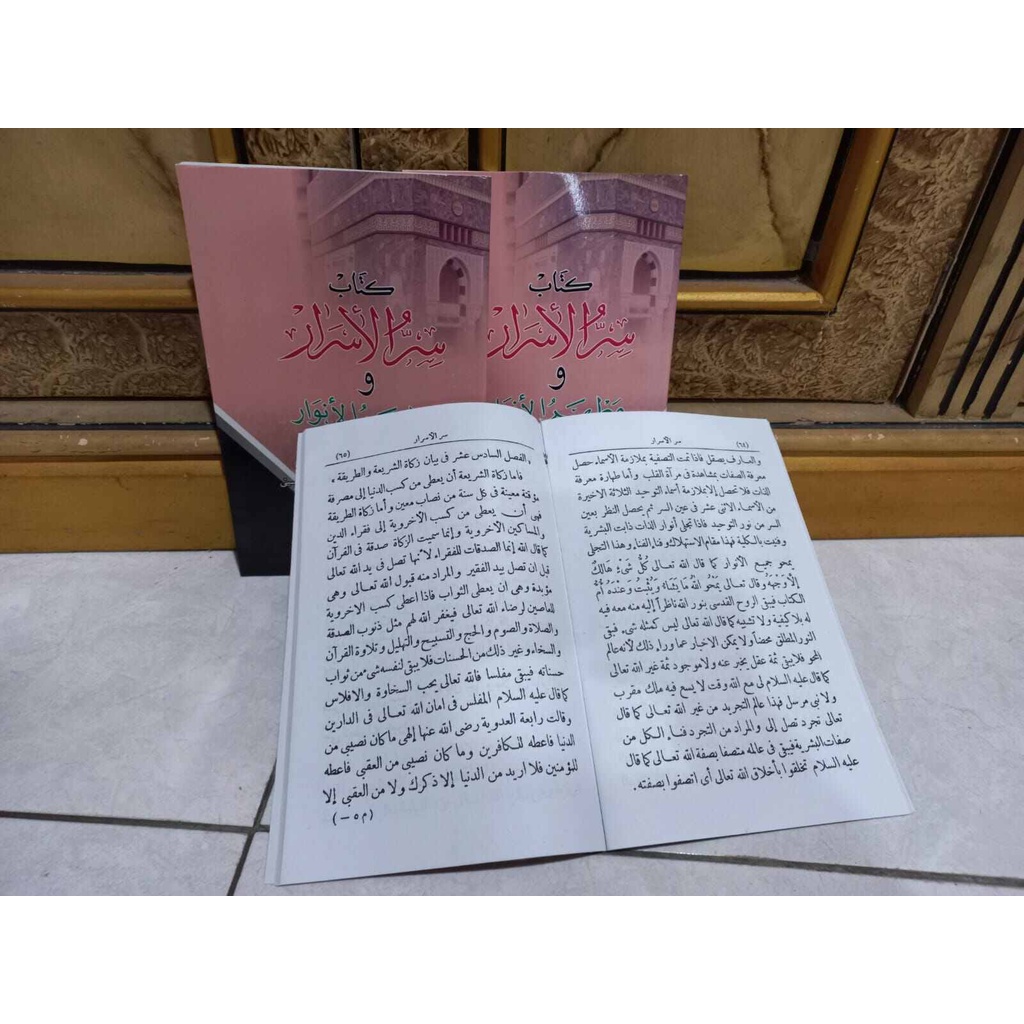 كتاب
سر الأسرار
و
الأنوار
كتاب
سر الأسرار
و
(٦٤)
سر الأسرار
والعارف بصقل فاذا تمت التصفية بملازمة الاسماء حصل
معرفة الصفات بمشاهدة فى مرآة القلب وأما طهارة معرفة
الذات فلا تحصل إلا بملازمة أسماء التوحيد الثلاثة الاخيرة
من الاسماء الاثنى عشر فى عين السر ثم يحصل النظر بعين
السر من نور التوحيد فاذا تجلى أنوار الذات ذابت البشرية
وفنيت بالكلية فهذا مقام الاستهلاك وفناء الفناء وهذا التجلى
يمحو جميع الانوار كما قال الله تعالى كُلُّ شَىْءٍ هَالِكٌ
إلَّا وَجْهَهُ وقال تعالى يَمْحُو اللهُ مَا يَشَاءُ وَيُثْبِتُ وَعِنْدَهُ أُمُّ
الكتاب فيبقى الروح القدسى بنور الله ناظراً إليه منه معه فيه
له بلا كيفية ولا تشبيه كما قال الله تعالى ليس كمثله شىء فبقى
النور المطلق محضاً ولا يمكن الاخبار عما وراء ذلك لأنه عالم
المحو فلا يبقى ثمة عقل يخبر عنه ولا موجود ثمة غير الله تعالى
كما قال عليه السلام لى مع الله وقت لا يسع فيه ملك مقرب
ولا نبى مرسل فهذا عالم التجريد من غير الله تعالى كما قال
تعالى تجرد تصل إلى والمراد من التجرد فناء الكل من
صفات البشرية فيبقى فى عالمه متصفا بصفة الله تعالى كما قال
عليه السلام تخلقوا بأخلاق الله تعالى أى اتصفوا بصفته .
سر الأسرار
(٦٥)
، الفصل السادس عشر فى بيان زكاة الشريعة والطريقة ،
فاما زكاة الشريعة أن يعطى من كسب الدنيا إلى مصرفة
مؤقتة معينة فى كل سنة من نصاب معين وأما زكاة الطريقة
فهى أن يعطى من كسب الاخروية إلى فقراء الدين
والمساكين الأخروية وإنما سميت الزكاة صدقة فى القرآن
كما قال الله إنما الصدقات للفقراء لأنها تصل فى يد الله تعالى
قبل ان تصل بيد الفقير والمراد منه قبول الله تعالى وهى
مؤبدة وهى ان يعطى الثواب فاذا اعطى كسب الاخروية
للعاصين لرضاء الله تعالى فيغفر الله لهم مثل ذنوب الصدقة
والصلاة والصوم والحج والتسبيح والتهليل وتلاوة القرآن
والسخاء وغير ذلك من الحسنات فلا يبقى لنفسه شىء من ثواب
حسناته فيبقى مفلسا فالله تعالى يحب السخاوة والافلاس
كما قال عليه السلام المفلس فى امان الله تعالى فى الدارين
وقالت رابعة العدوية رضى الله عنها إلهى ما كان نصيبى من
الدنيا فاعطه للكافرين وما كان نصيبى من العقبى فاعطه
للمؤمنين فلا اريد من الدنيا إلا ذكرك ولا من العقبى إلا
(م ٥ —)